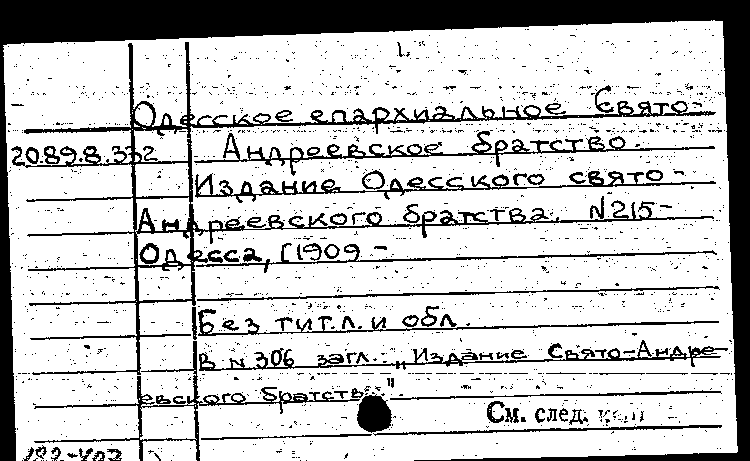 1.
Одесское епархиальное Свято-
20.89.8.332 Андреевское братство.
Издание Одесского свято-
Андреевского братства. N215-
Одесса, [1909 -
Без тит.л. и обл.
В N 306 загл.: „Издание Свято-Андре-
евского братства".
См. след.